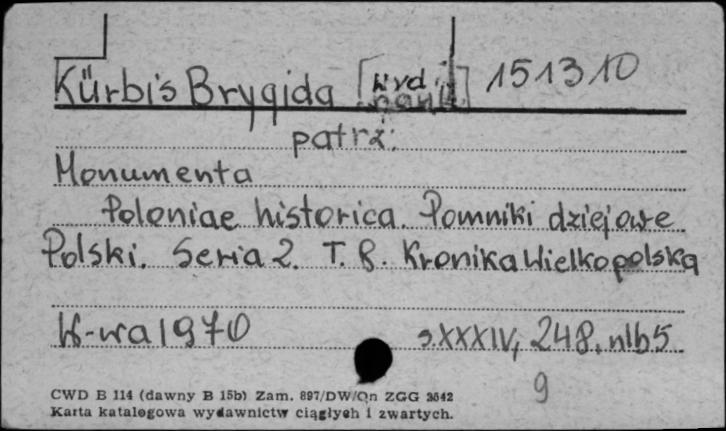 Kürbis Brygida [wyd. 151310
patrz:
Monumenta
Poloniae historica. Pomniki dziejowe
Polski. Seria 2. T. 8. Kronika Wielkopolska
W-wa 1970 s. XXXIV, 248, nlb 5
9
CWD B 114 (dawny B 15b) Zam. 897/DW/Qn ZGG 3642
Karta katalogowa wydawnictw ciągłych i zwartych.